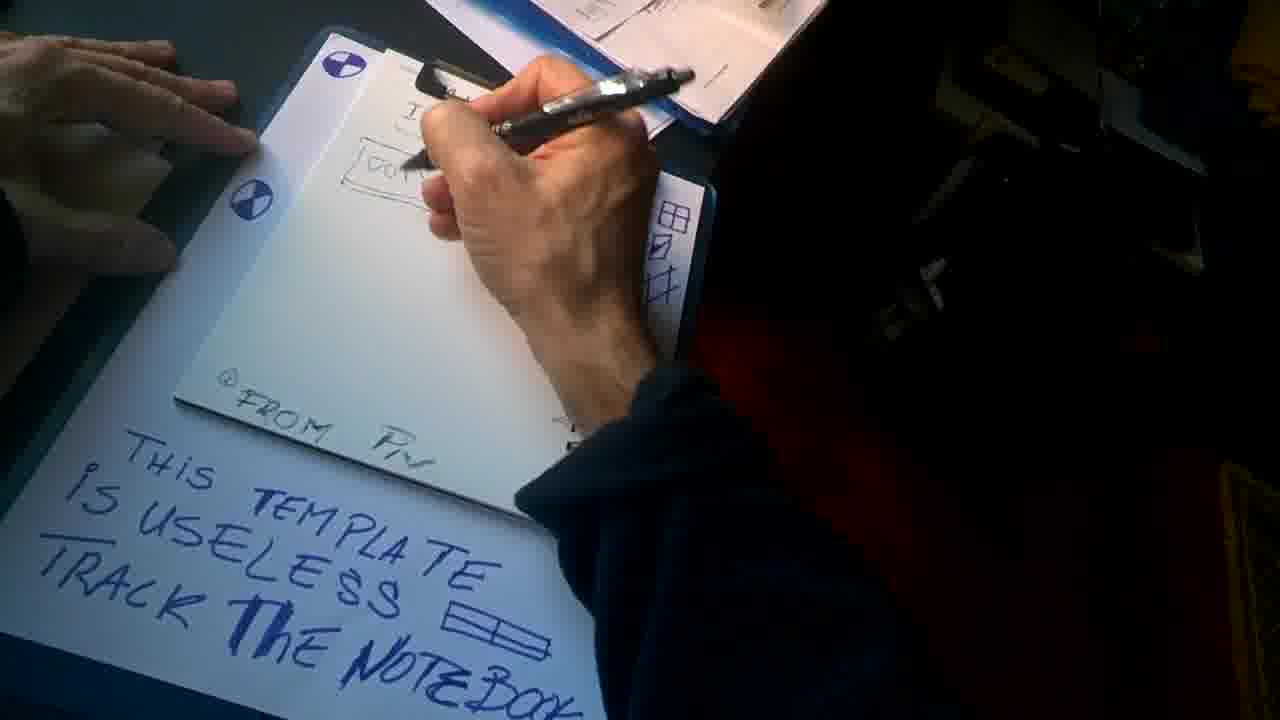 FROM
THIS TEMPLATE
iS USELESS
TRACK THE NOTEBOOK